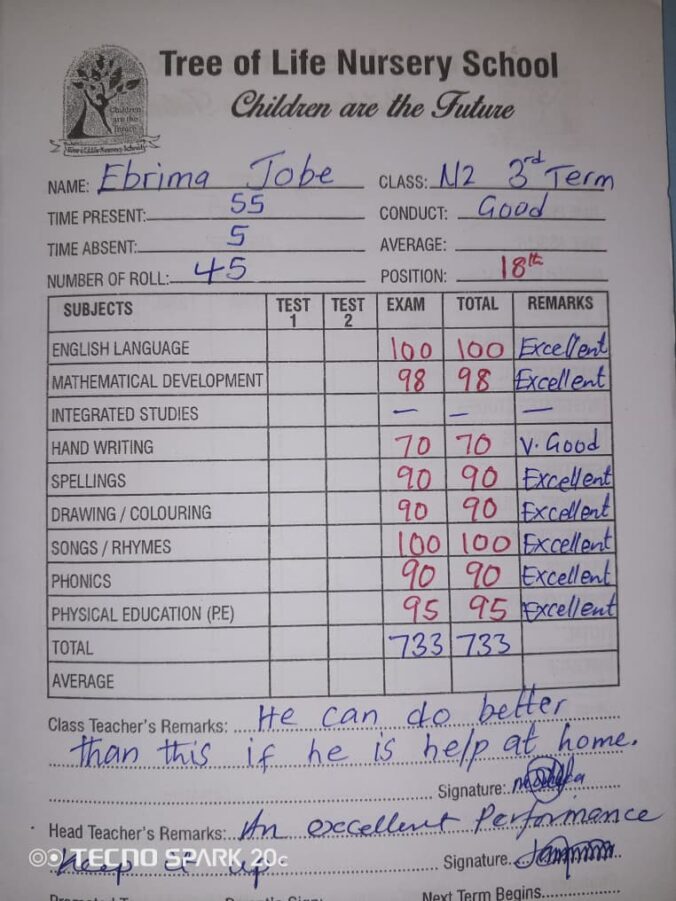 Tree of Life Nursery School
Children are the Future
Children
are the
Future
Tree of Life Nursery School
NAME: Ebrima Jobe CLASS: N2 3rd Term
TIME PRESENT: 55 CONDUCT: Good
TIME ABSENT: 5 AVERAGE:
NUMBER OF ROLL: 45 POSITION: 18th
SUBJECTS TEST 1 TEST 2 EXAM TOTAL REMARKS
ENGLISH LANGUAGE 100 100 Excellent
MATHEMATICAL DEVELOPMENT 98 98 Excellent
INTEGRATED STUDIES — — —
HAND WRITING 70 70 V. Good
SPELLINGS 90 90 Excellent
DRAWING / COLOURING 90 90 Excellent
SONGS / RHYMES 100 100 Excellent
PHONICS 90 90 Excellent
PHYSICAL EDUCATION (P.E) 95 95 Excellent
TOTAL 733 733
AVERAGE
Class Teacher's Remarks: He can do better
than this if he is help at home.
Signature:
Head Teacher's Remarks: An excellent Performance
keep it up Signature.
TECNO SPARK 20c
Next Term Begins